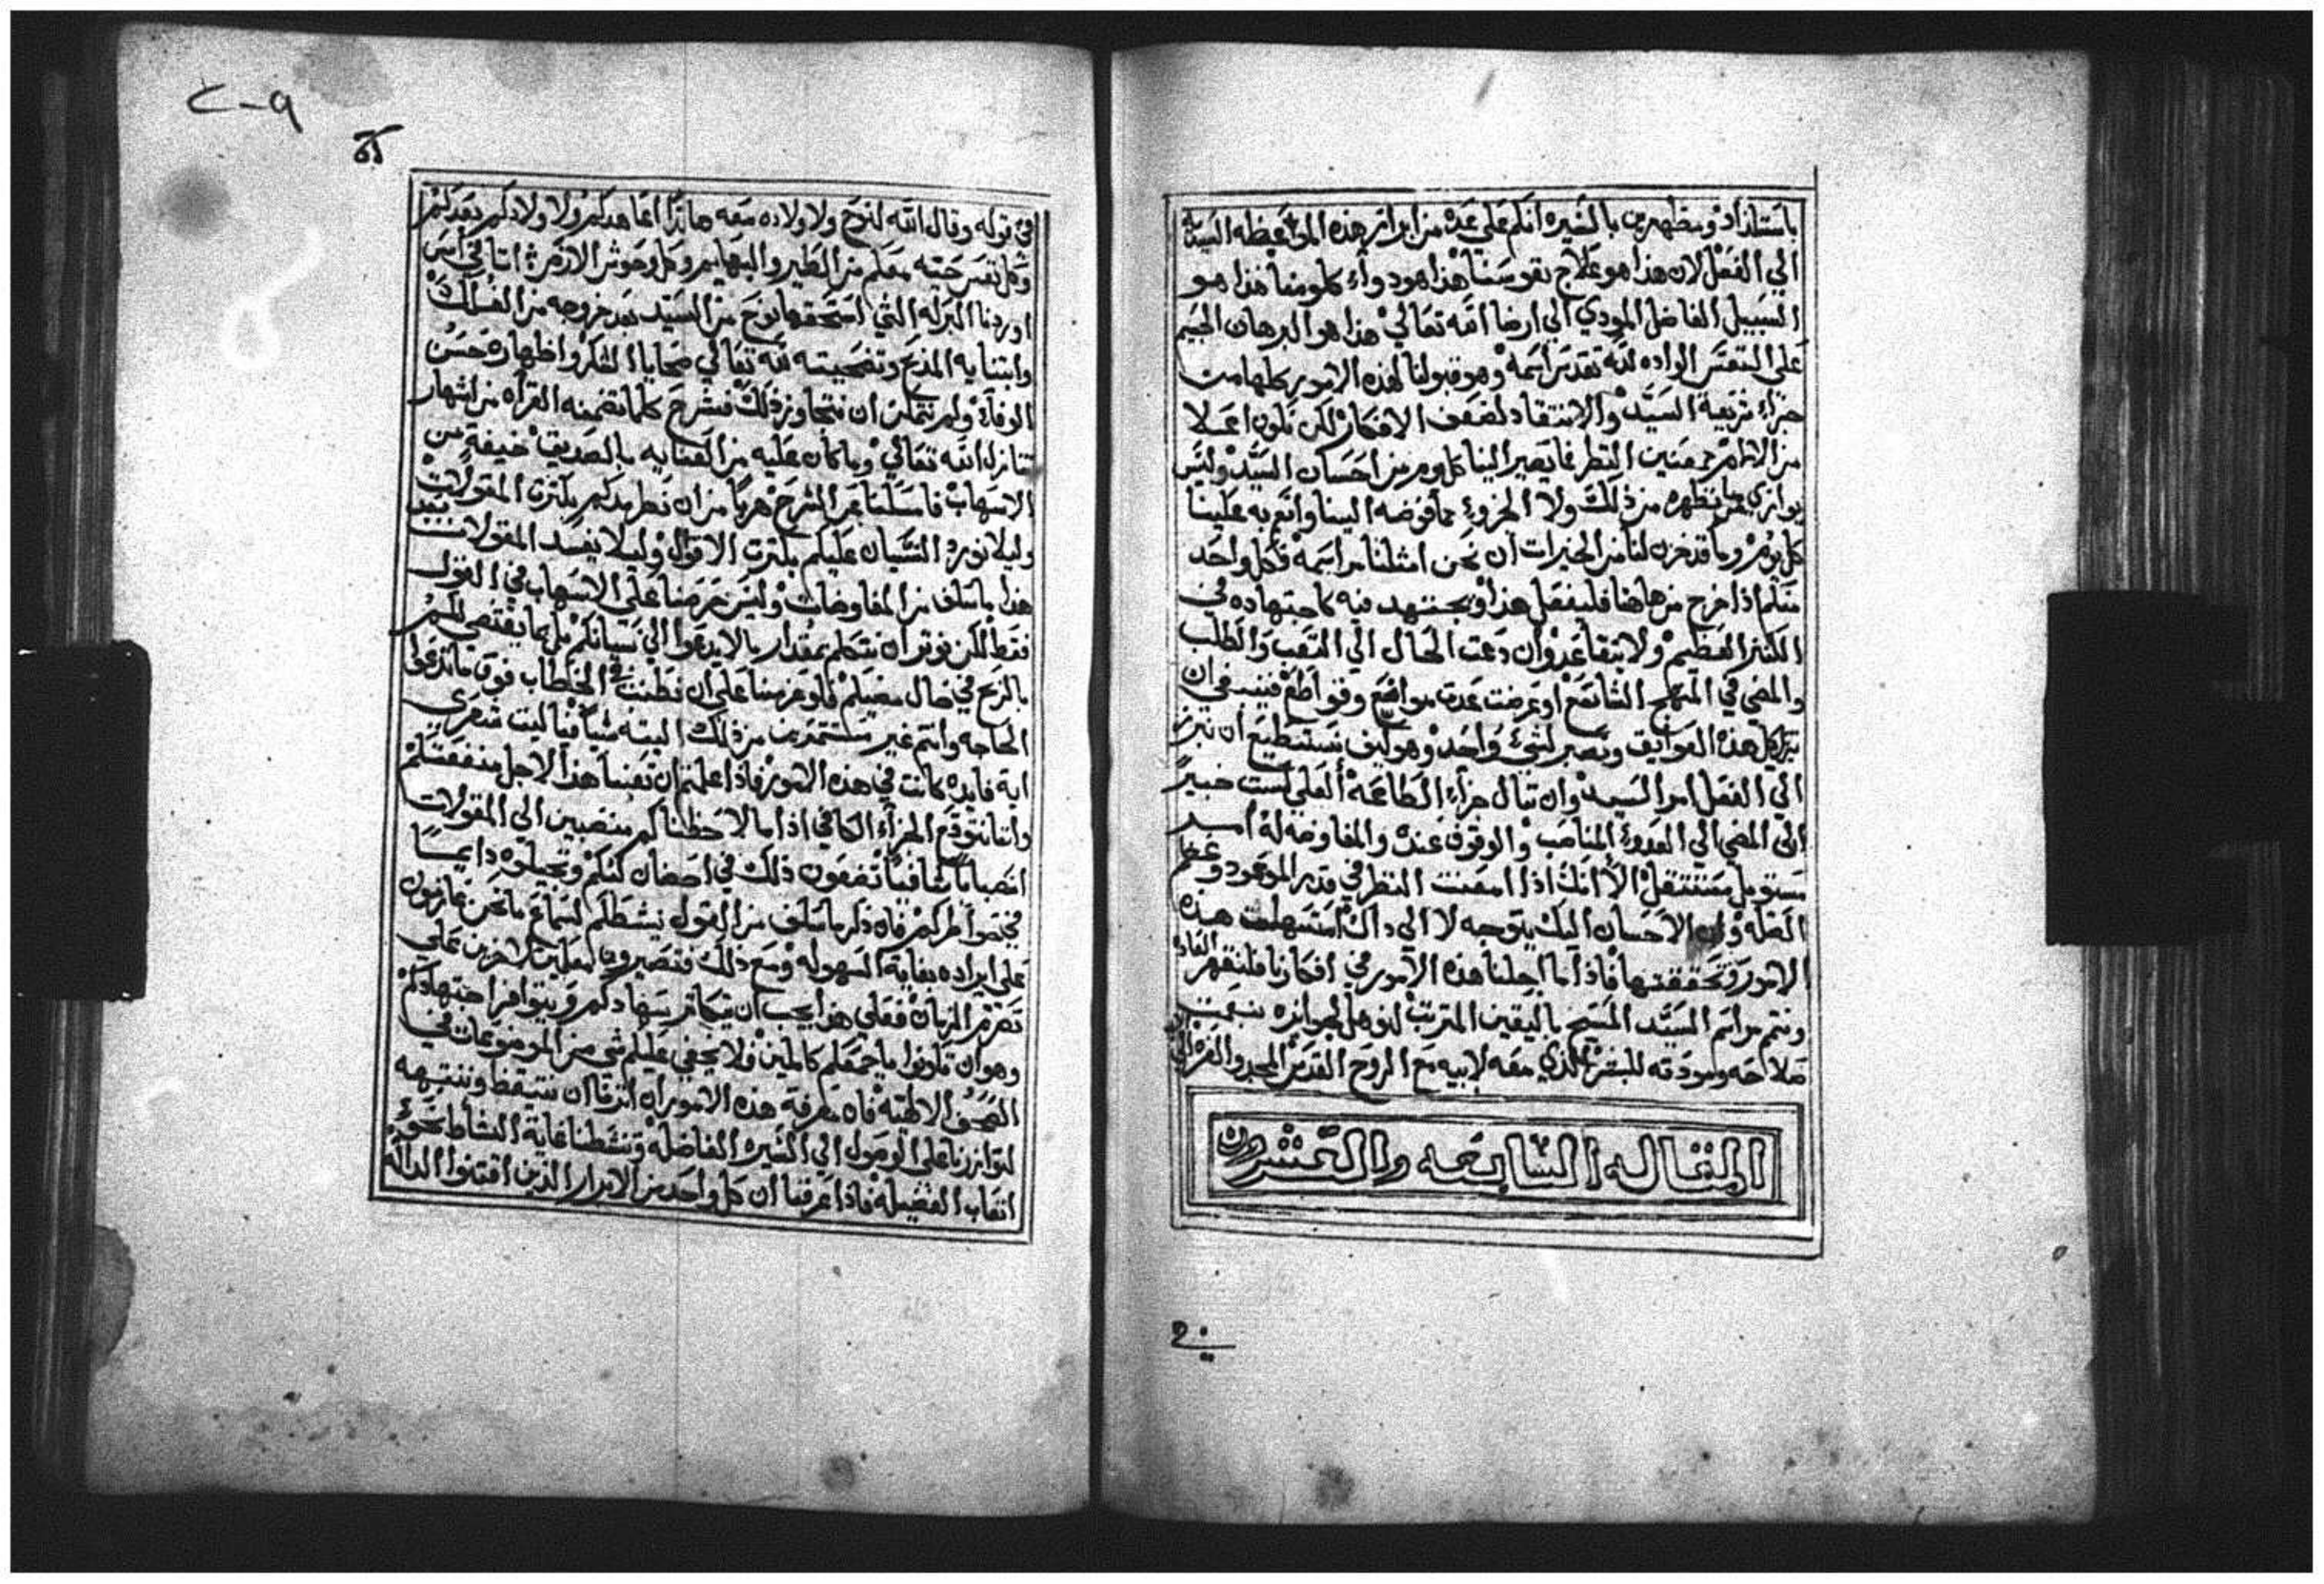 باستلذاذ ومظهرين بالسيره انكم علي عده من ابراز هذه الموعظه السيديه
الي الفعل لان هذا هو علاج نفوسنا هذا هو دواء كلومنا هذا هو
السبيل الفاضل المودي الي ارضا الله تعالي هذا هو البرهان الجسيم
علي النفس الواده لله تقدس اسمه وهو قبولنا لهذه الامور كلها من
جراء شريعة السيد والانتقاد لضعف الافكار لكن نكون اعملا
من الالام ممعنين النظر فما يصير الينا كل يوم من احسان السيد وليس
يوازي ما نظهره من ذلك ولا الجزوء مما فوضه الينا وانعم به علينا
كل يوم وما قد خزن لنا من الخيرات ان نحن امثلنا مراسمه فكل واحد
منكم اذا خرج من هاهنا فليفعل هذا ويجتهد فيه كاجتهاده في
الكنز العظيم ولا يتقاعد وان دعت الحال الي التعب والطلب
والمضي في المنهج الشاسع او عرضت عدت مواضع وقواطع فينبغي ان
نترك كل هذه العوايق ونصير لشيء واحد وهو كيف نستطيع ان نبرز
الي الفعل امر السيد وان تنال جزاء الطاعه العلي لست خبيراً
الي المضي الي العدوء المناصب والوقوف عنده والمفاوضه له امر
مستوبل مستثقل الا انك اذا امعنت النظر في قدر الموعود وعظم
الصله وان الاحسان اليك يتوجه لا الي ذاك استسهلت هذه
الامور وتحققتها فاذا ما اجلنا هذه الامور في افكارنا فلنقهر العاده
ونتم مراسم السيد المسيح باليقين المترتب لنوهل لجوايزه بنعمت
صلاحه ومودته للبشر الذي معه لابيه مع الروح القدس المجد والعز الي
المقاله السابعه والعشرون
في
٢٠٩
كه
في قوله وقال الله لنوح ولاولاده معه هانذا اعاهدكم ولاولادكم بعدكم
وكل نفس حيه معكم من الطير والبهايم وكل وحوش الارض انا في امس
اوردنا البركه التي استحقها نوح من السيد بعد خروجه من الفلك
وابتنايه المذبح وتضحيته لله تعالي ضحايا الشكر واظهاره حسن
الوفاء ولم نتمكن ان نتجاوز ذلك فنشرح كلما تضمنه القراه من اشهار
تنازل الله تعالي وما كان عليه من العنايه بالصديق خيفة من
الاسهاب فامسكنا عن الشرح هرباً من ان نطمرهم بكثرة المقولات
وليلا نورد النسيان عليكم بكثرت الاقوال وليلا يفسد المقولات بعد
هذا ما سلف من المفاوضات وليس غرضنا علي الاسهاب في القول
فقط لكن نوثر ان نتكلم بمقدار ما لا يدعوا الي نسيانكم بل بما يقتضي لكم
بالربح في حال مضيكم فلو عزمنا علي ان نطنب في الخطاب فوق ما تدعوا
الحاجه وانتم غير مستثمرين من ذلك البته شياً فياليت شعري
اية فايده كانت في هذه الامور فاذا علمتم ان تعبنا هذا لاجل منفعتكم
واننا نتوقع الجزاء الكافي اذا ما لاحظناكم منتصبين الي المقولات
انتصاباً شافياً تضعون ذلك في احضان كنكم وتجيلوه دايماً
في خواطركم فان ذكر ما سلف من القول ينشطكم لسماع ما نحن عازمون
علي ايراده بغاية السهوله ومع ذلك فتصيرون معلمين لاخرين علي
تصرم الزمان فعلي هذا يجب ان يتكاثر سهادكم ويتوافر اجتهادكم
وهو ان تكونوا باجمعكم كاملين فلا يخفي عليكم شي من الموضوعات في
الصحف الالهيه فان معرفة هذه الامور ان اثرنا ان نتيقظ وننتبه
لتوازرنا علي الوصول الي السيره الفاضله وتنشطنا غاية النشاط نحو
اتعاب الفضيله فاذا عرفنا ان كل واحد من الابرار الذين اقتنوا الداله